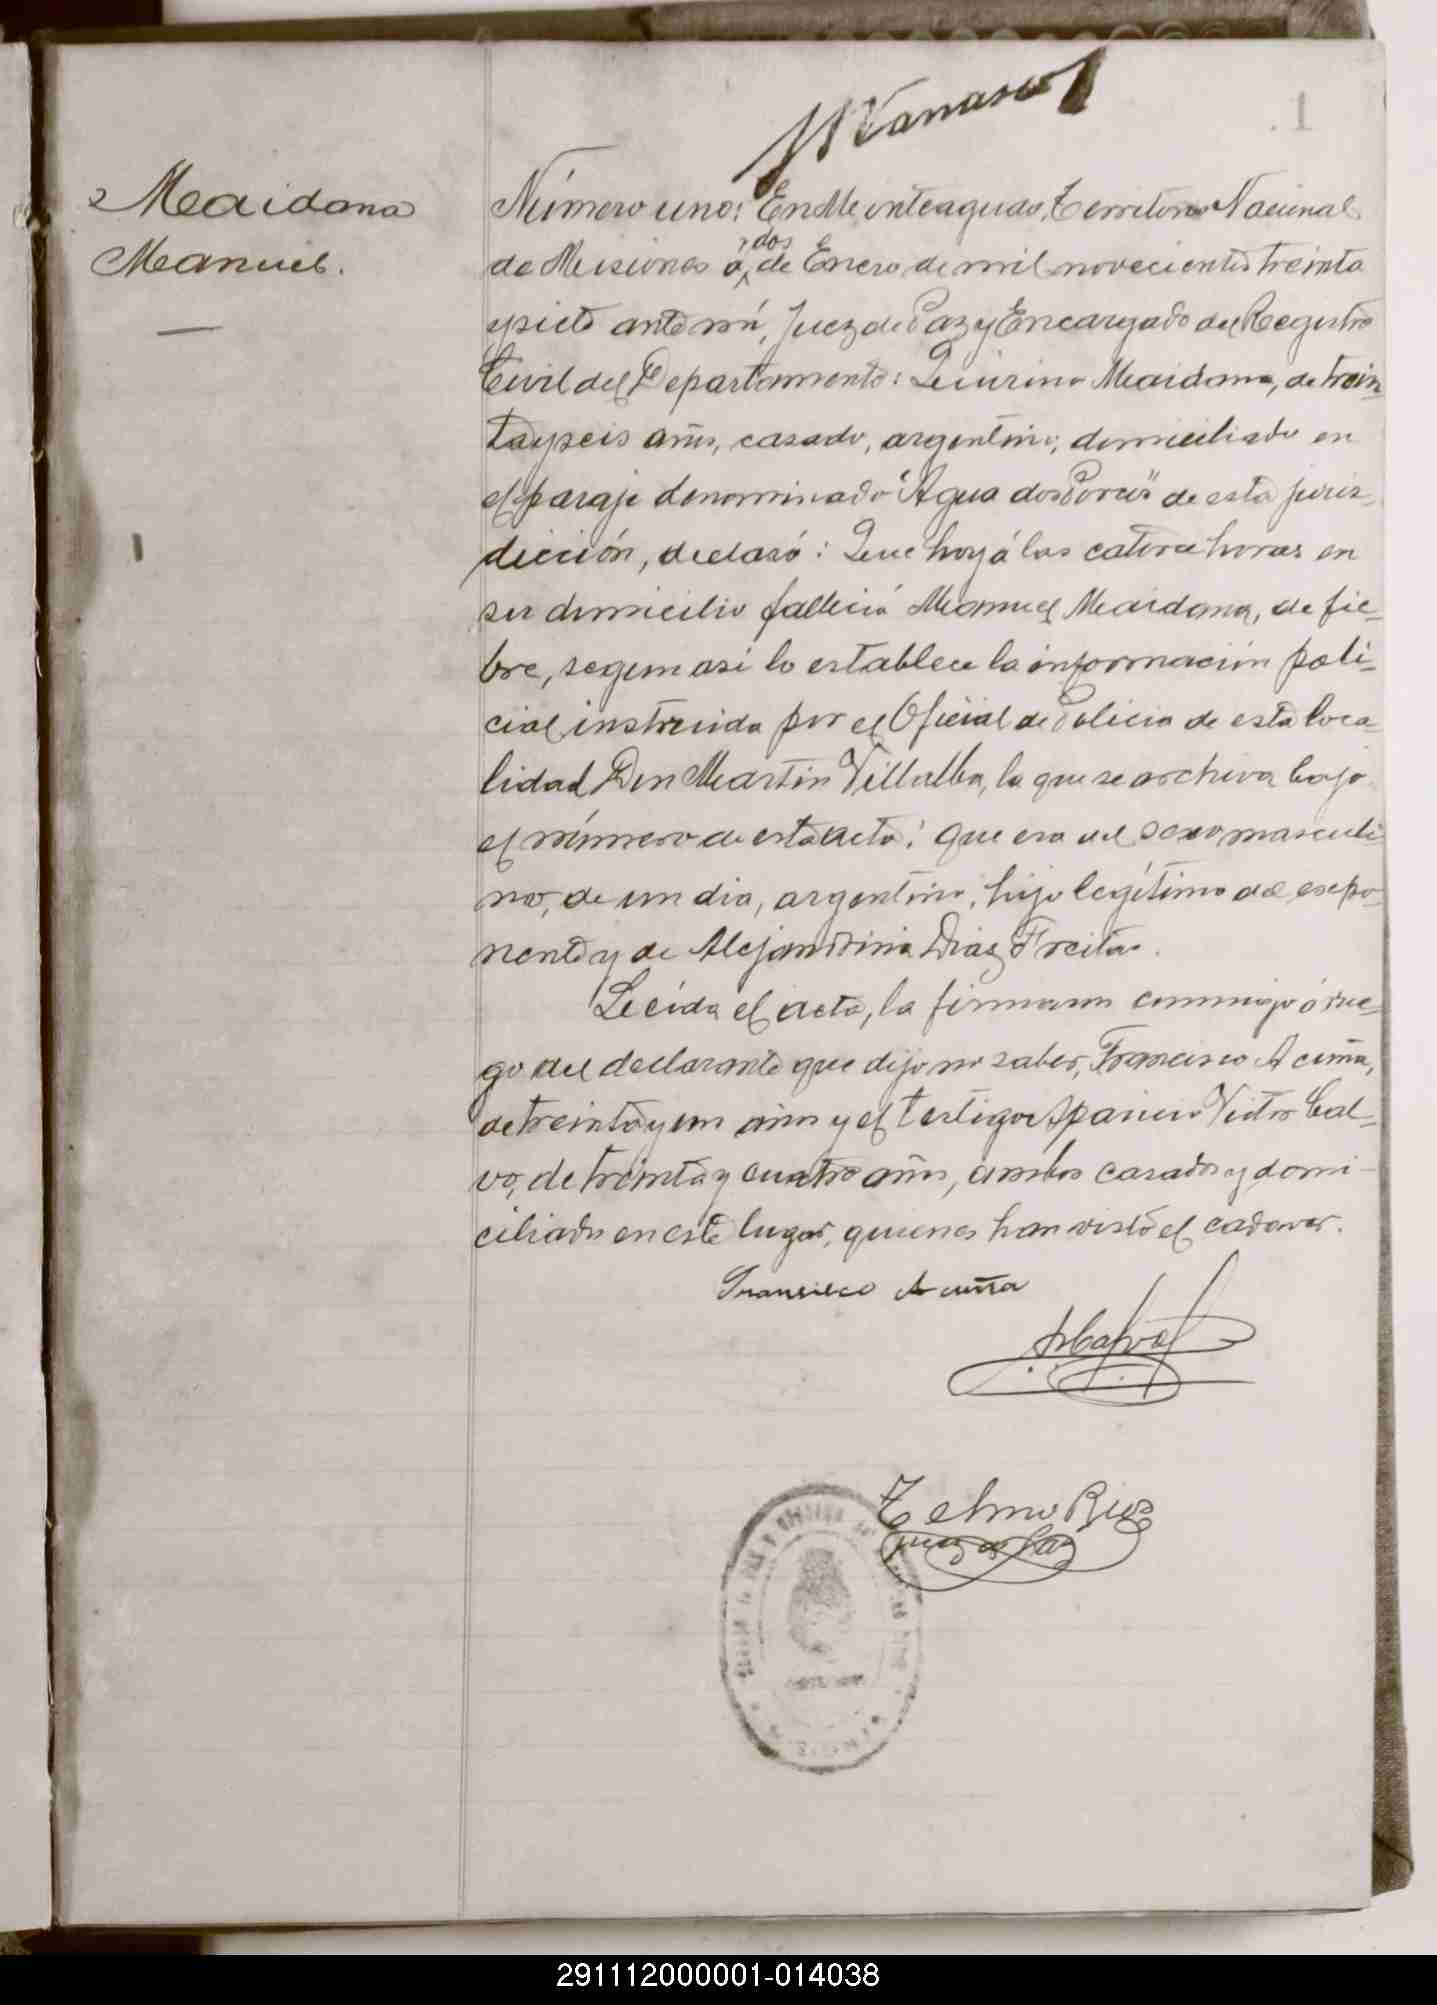 1
Maidana
Manuel.
Número uno: En Monteagudo, Territorio Nacional
de Misiones á dos de Enero de mil novecientos treinta
y siete ante mí, Juez de Paz y Encargado del Registro
Civil del Departamento: Quirino Maidana, de trein-
ta y seis años, casado, argentino, domiciliado en
el paraje denominado "Agua dos Porcos" de esta juris-
dicción, declaró: Que hoy á las catorce horas en
su domicilio falleció Manuel Maidana, de fie-
bre, segun así lo establece la información poli-
cial instruida por el Oficial de Policia de esta loca-
lidad Don Martin Villalba, la que se archiva bajo
el número de esta acta; que era del sexo masculi-
no, de un dia, argentino, hijo legítimo del expo-
nente y de Alejandrina Diaz Freitas.
Leída el acta, la firmaron conmigo á rue-
go del declarante que dijo no saber, Francisco Acuña,
de treinta y un años y el testigo Aparicio Victor Cal-
vo, de treinta y cuatro años, ambos casados y domi-
ciliados en este lugar, quienes han visto el cadaver.
Francisco Acuña
Calvo
Telmo Rios
Juez de Paz
291112000001-014038